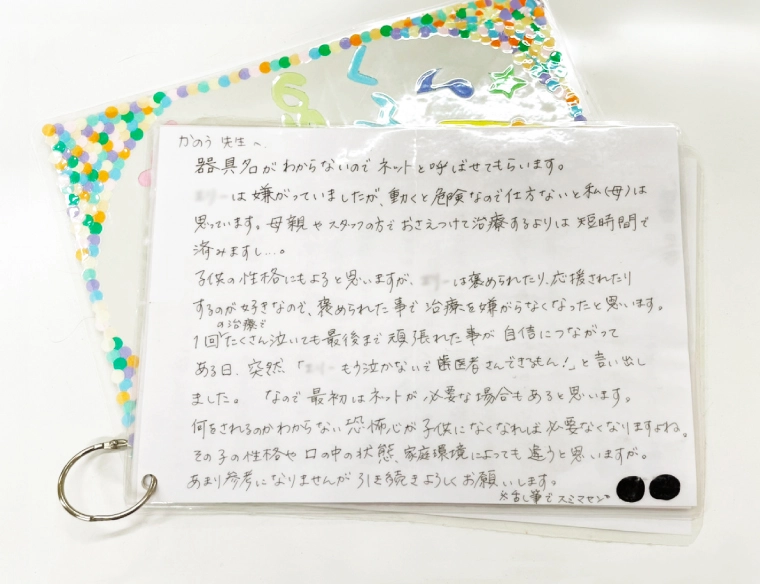 かのう 先生へ
器具名がわからないのでネットと呼ばせてもらいます。
は嫌がっていましたが、動くと危険なので仕方ないと私(母)は
思っています。母親やスタッフの方でおさえつけて治療するよりは短時間で
済みますし…。
子供の性格にもよると思いますが、は褒められたり、応援されたり
するのが好きなので、褒められた事で治療を嫌がらなくなったと思います。
の治療で
1回たくさん泣いても最後まで頑張れた事が自信につながって
ある日、突然、「もう泣かないで歯医者さんできるもん!」と言い出し
ました。 なので最初はネットが必要な場合もあると思います。
何をされるのかわからない恐怖心が子供になくなれば必要なくなりますよね。
その子の性格や口の中の状態、家庭環境によっても違うと思いますが。
あまり参考になりませんが引き続きよろしくお願いします。
乱筆でスミマセン。